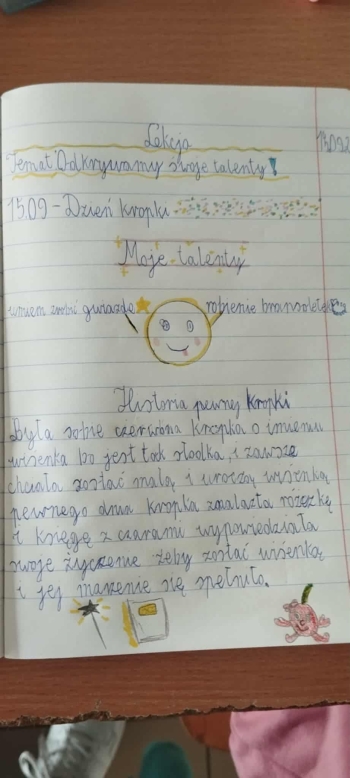 Lekcja 15.09.2
Temat: Odkrywamy swoje talenty!
15.09 - Dzień kropki
Moje talenty
umiem zrobić gwiazdę robienie bransoletek
Historia pewnej kropki
Była sobie czerwona kropka o imieniu
wisienka bo jest tak słodka, i zawsze
chciała zostać małą i uroczą wisienką
pewnego dnia kropka znalazła różczkę
i księgę z czarami wypowiedziała
swoje życzenie żeby zostać wisienką
i jej marzenie się spełniło.